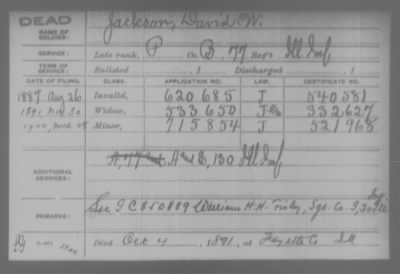 DEAD
NAME OF SOLDIER: Jackson, David W.
SERVICE: Late rank, P Co. B, 77 Reg't Ill Inf
TERM OF SERVICE: Enlisted , 1 Discharged , 1
DATE OF FILING. CLASS. APPLICATION NO. LAW. CERTIFICATE NO.
1887 Aug 26 Invalid, 620685 J 540581
1891 Nov 30 Widow, 533650 332627
1900 Minor, 715854 J 521968
ADDITIONAL SERVICES: A, 77 A and E, 130 Ill Inf
REMARKS: See I C 850889 William H.H. Co. I, 20
Died Oct 4, 1891, at Fayette Co Ill